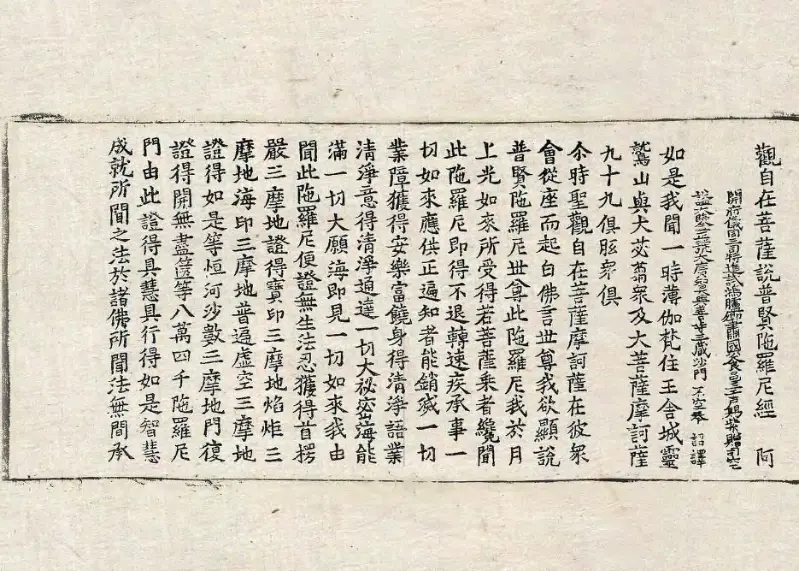 觀自在菩薩說普賢陁羅尼經 阿
開府儀同三司特進試鴻臚卿肅國公食邑三千戶賜紫贈司空
大廣智大興善寺三藏沙門 不空奉 詔譯
如是我聞一時薄伽梵住王舍城靈
鷲山與大苾蒭衆及大菩薩摩訶薩
九十九俱胝衆俱
尒時聖觀自在菩薩摩訶薩在彼衆
會從座而起白佛言世尊我欲顯說
普賢陁羅尼世尊此陁羅尼我於月
上光如來所受得若菩薩乘者纔聞
此陁羅尼即得不退轉速疾承事一
切如來應供正遍知者能銷滅一切
業障獲得安樂富饒身得清淨語業
清淨意得清淨通達一切大祕密海能
滿一切大願海即見一切如來我由
聞此陁羅尼便證無生法忍獲得首楞
嚴三摩地證得寶印三摩地焰炬三
摩地海印三摩地普遍虛空三摩地
證得如是等恒河沙數三摩地門復
證得開無盡篋等八萬四千陁羅尼
門由此證得具慧具行得如是智慧
成就所聞之法於諸佛所聞法無間承